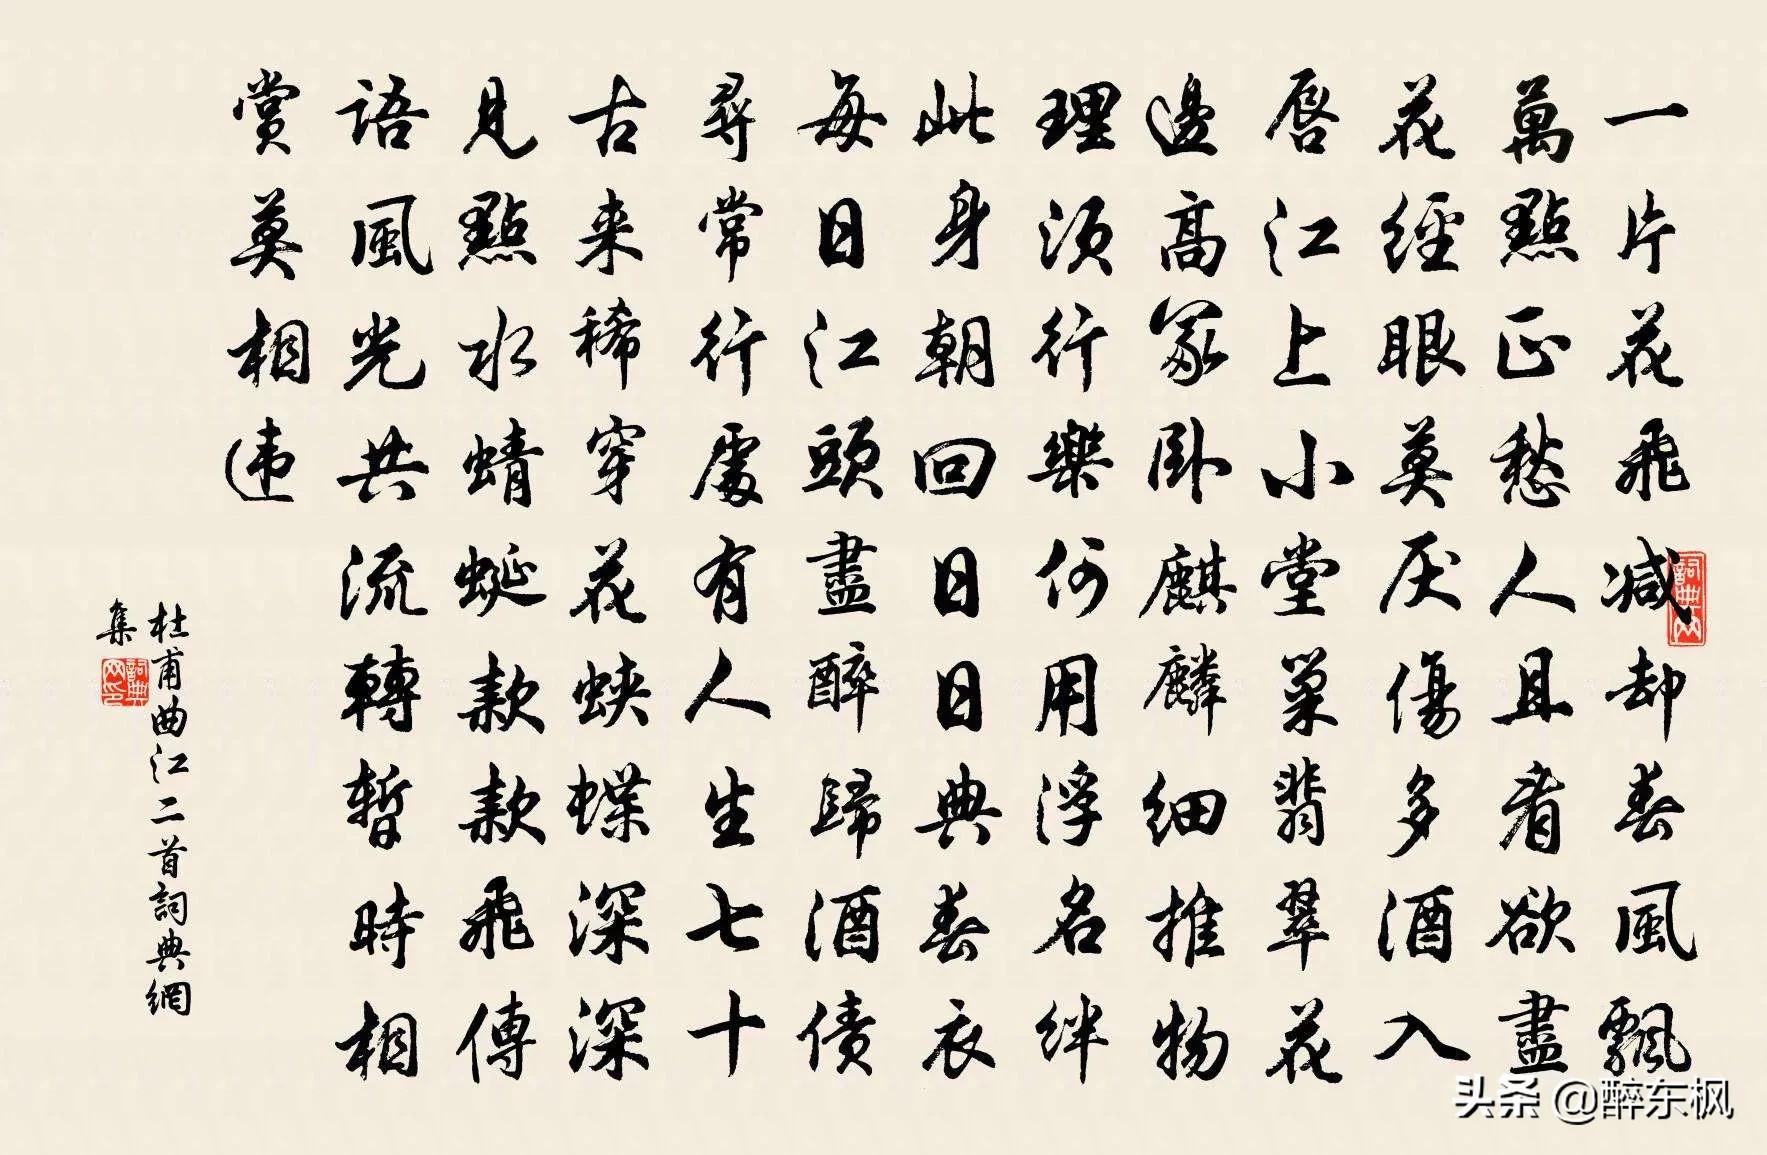 一片花飛减却春風飄
萬點正愁人且看欲盡
花經眼莫厌傷多酒入
唇江上小堂巢翡翠花
邊高冢卧麒麟細推物
理須行樂何用浮名絆
此身朝回日日典春衣
每日江頭盡醉歸酒债
尋常行處有人生七十
古来稀穿花蛱蝶深深
見點水蜻蜓款款飛傳
語風光共流轉暫時相
賞莫相违
杜甫曲江二首詞典網
集
詞典网
詞典网印
头条 @醉东枫